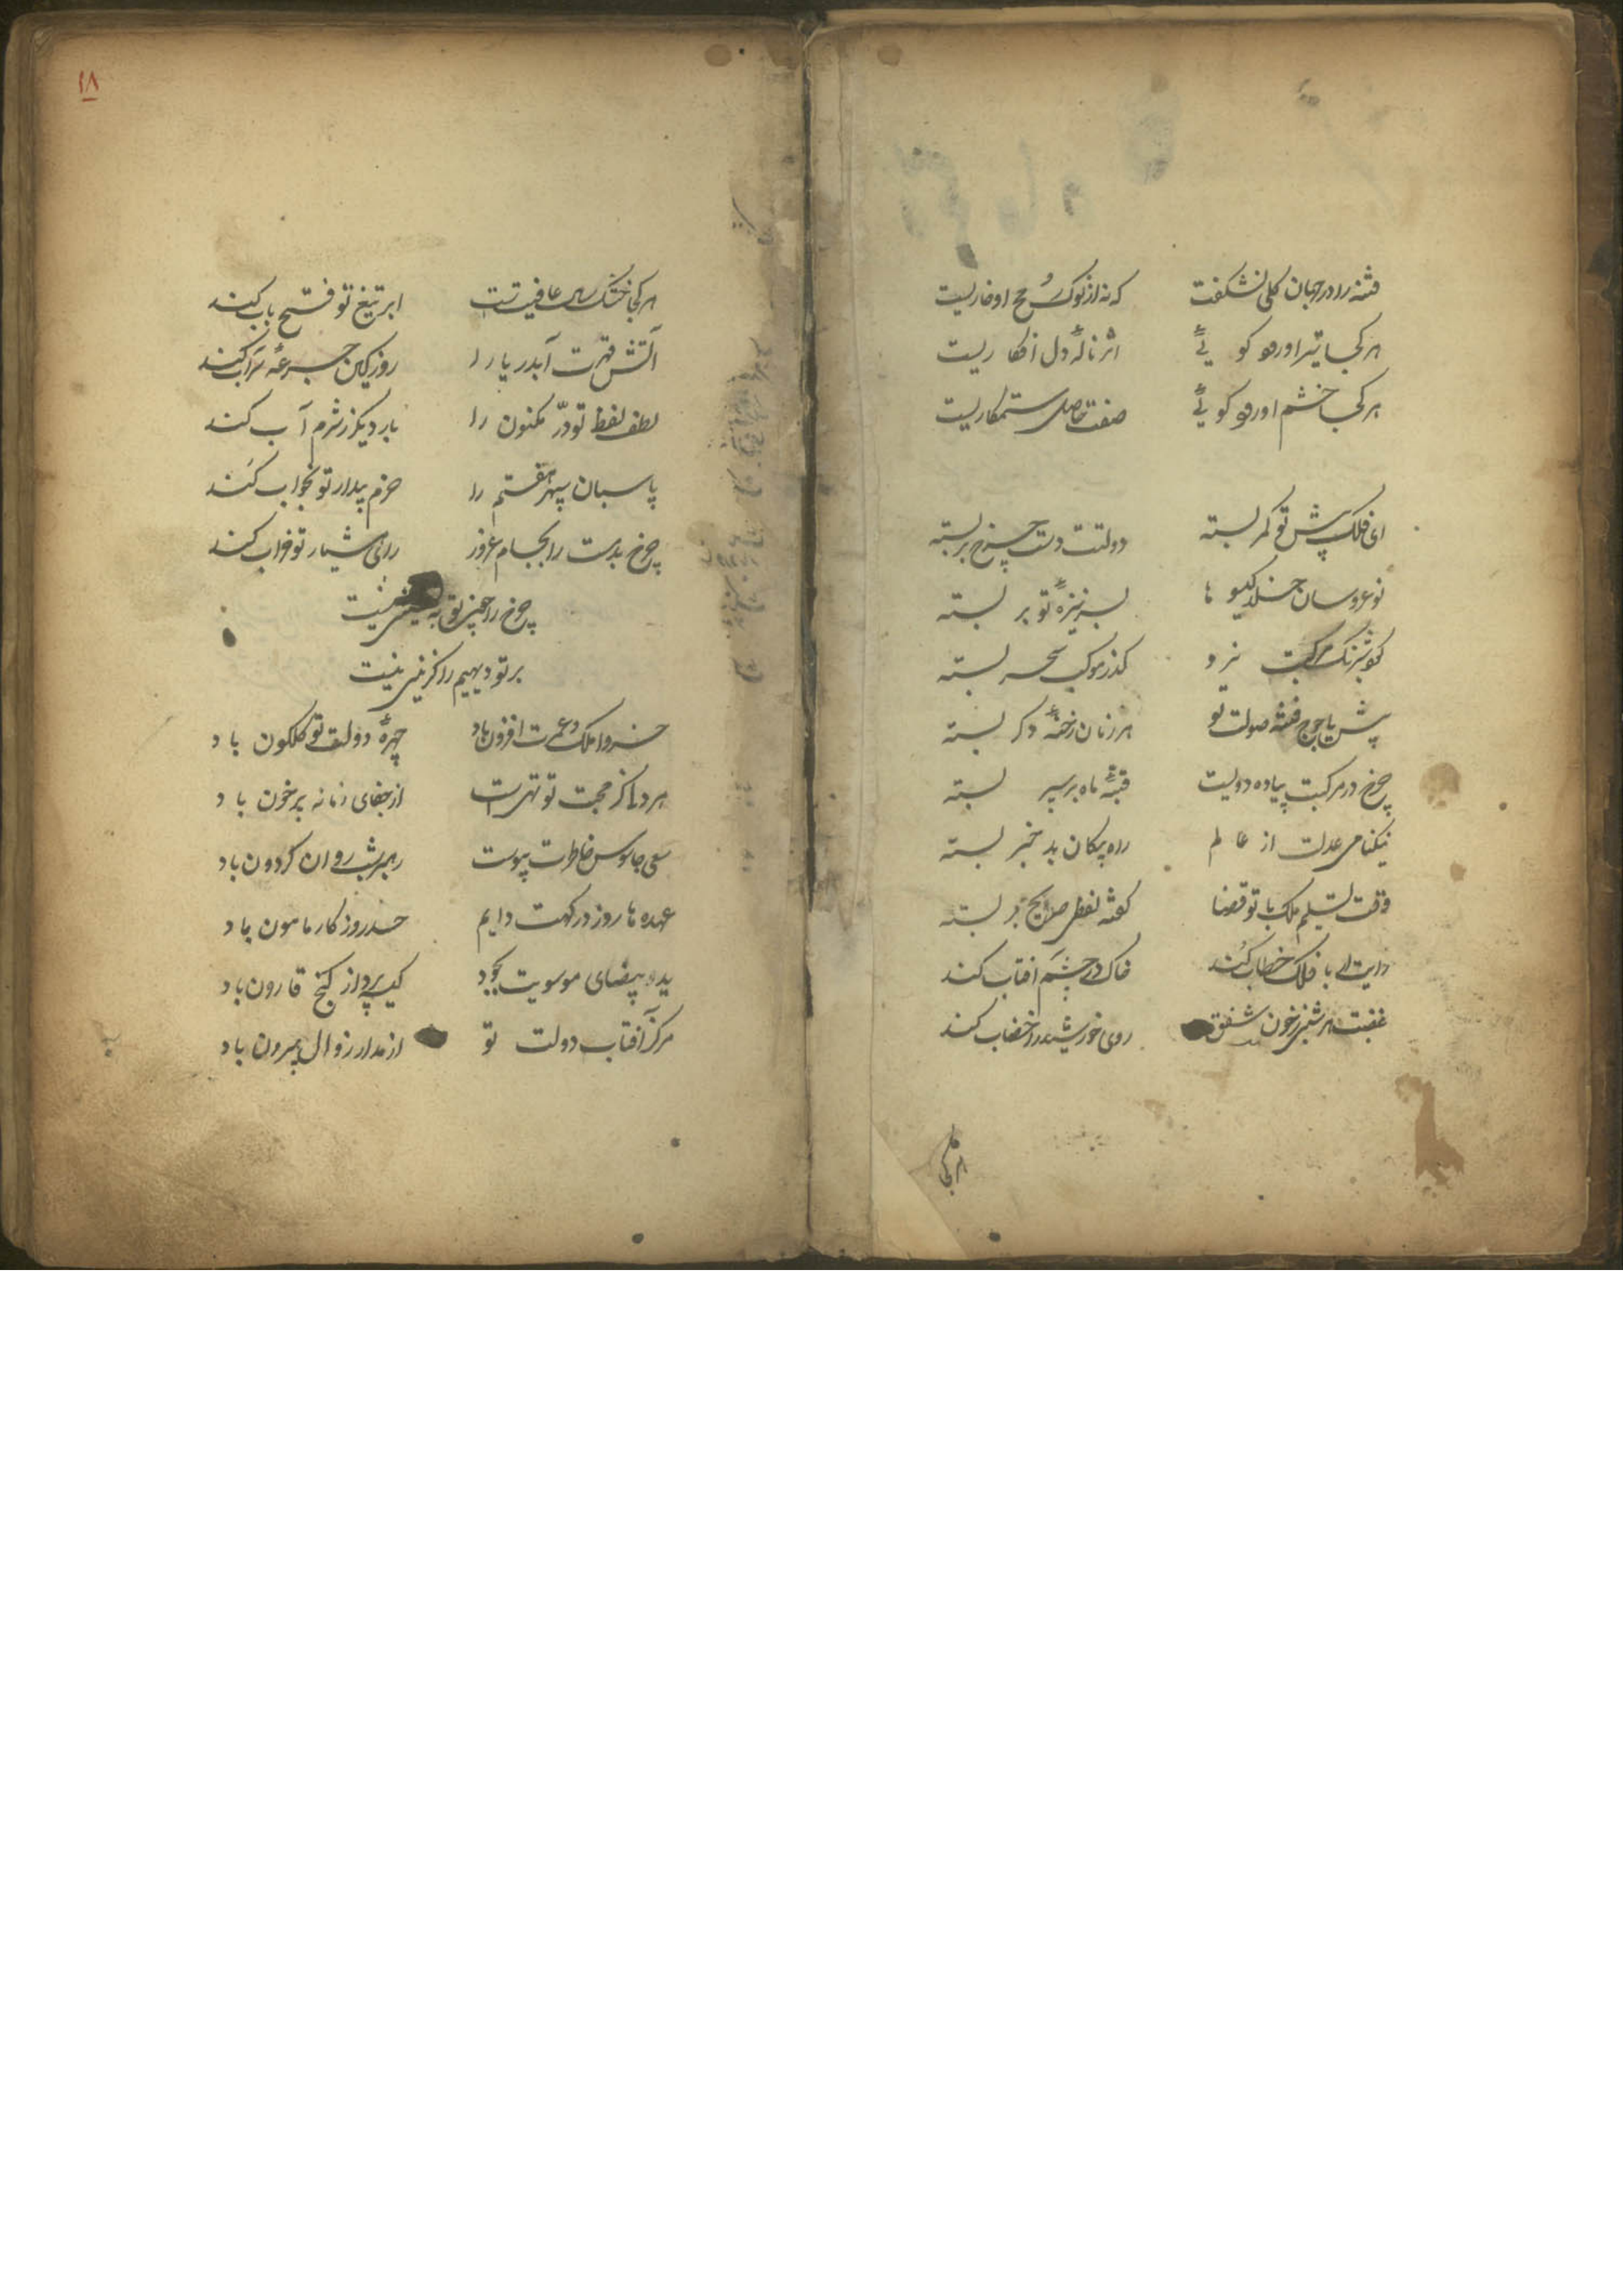 فتنه را در جهان کلی نشکفت که نه از نوک رمح او خاریست
هر کجا تیر او رود کویئ اثر نالهٔ دل افکاریست
هر کجا خشم او رود کویئ صفت حاصل ستمکاریست
ای فلک پیش تو کمر بسته دولتت دست چرخ بر بسته
نو عروسان جنک کیسو ها بسر نیزهٔ تو بر بسته
کوس شبرنک مرکبت نزد کذر موکب سحر بسته
پیش یاجوج فتنه صولت تو هر زمان رخنهٔ دکر بسته
چرخ در مرکبت پیاده دویست قبهٔ ماه بر سپر بسته
نیکنامی عدلت از عالم راه پیکان بد خبر بسته
وقت تسلیم ملک با تو قضا کفته لفظی صریح بر بسته
رایت ار با فلک خطاب کند خاک در چشم افتاب کند
غضبت هر شبی ز خون شفق روی خورشید را خضاب کند
هر کجا
۱۸
هر کجا خشک سال عافیتست ابر تیغ تو فتح باب کند
آتش قهرت آب دریا را روز کین جرعهٔ سراب کند
لطف لفظ تو درّ مکنون را بار دیکر ز شرم آب کند
پاسبان سپهر هفتم را حزم بیدار تو بخواب کند
چرخ بدمست را بجام غرور رای هشیار تو خراب کند
چرخ را چون تو به نشینی نیست
بر تو دیهیم را کزینی نیست
خسروا ملک و عمرت افزون باد چهرهٔ دولت تو کلکون باد
هر دلی کز محبت تو تهی است از جفای زمانه پر خون باد
سعی جاسوس خاطرت پیوست رهبر شب روان کردون باد
عهده ها روز درکهت دایم حسد روزکار مامون باد
ید بیضای موسویت بجود کیسه پرداز کنج قارون باد
مرکز آفتاب دولت تو از مدار زوال بیرون باد